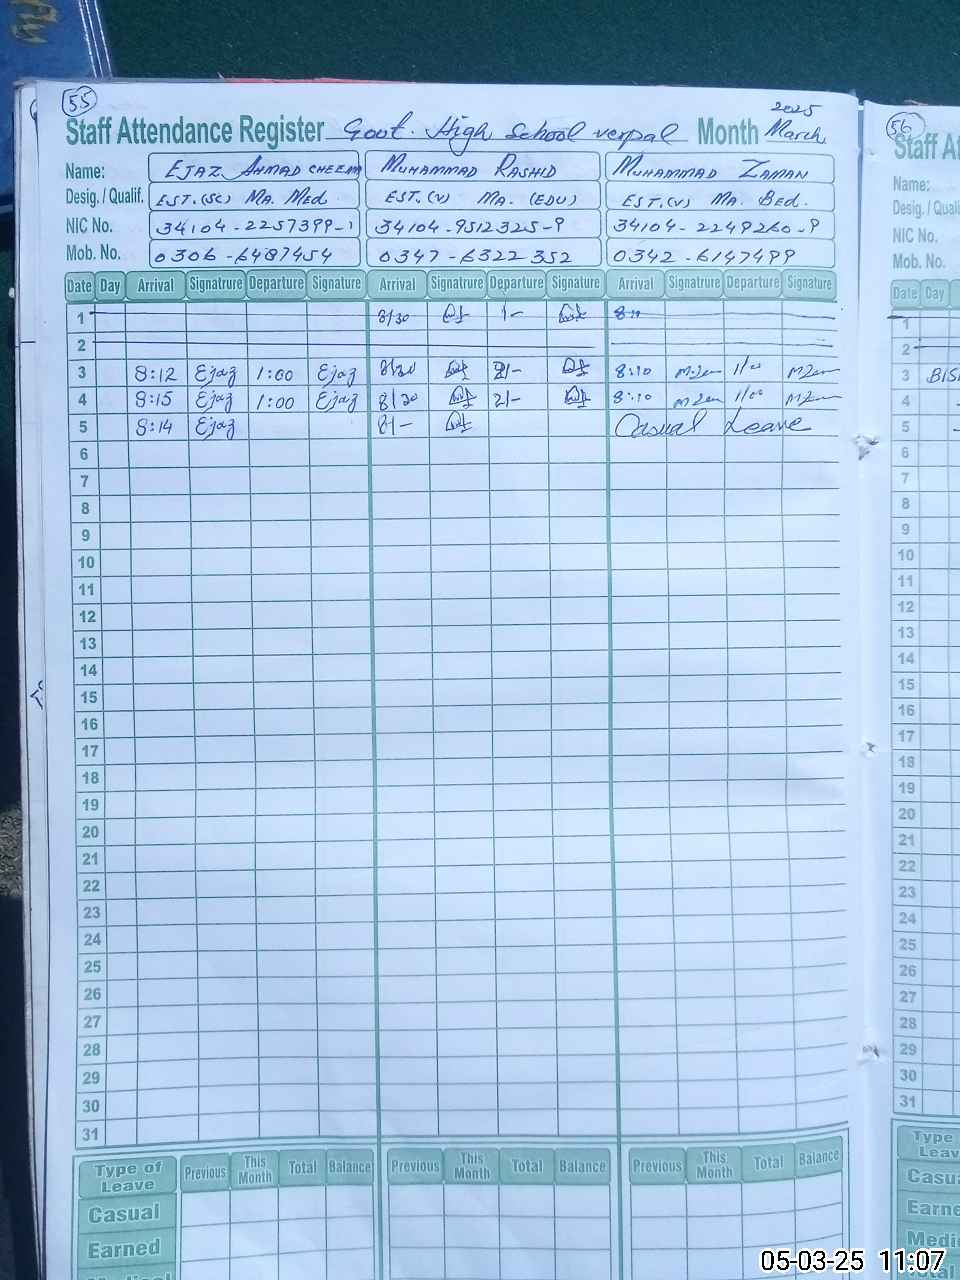 55
2025
Staff Attendance Register Govt. High School verpal Month March
Name: EJAZ AHMAD CHEEM MUHAMMAD RASHID MUHAMMAD ZAMAN
Desig. / Qualif. EST.(SC) MA. MEd. EST.(V) MA. (EDU) EST.(V) MA. BEd.
NIC No. 34104-2257399-1 34104-9512325-9 34104-2249260-9
Mob. No. 0306-6487454 0347-6322352 0342-6147499
Date Day Arrival Signatrure Departure Signature Arrival Signatrure Departure Signature Arrival Signatrure Departure Signature
1 8/30 1- 8:10
2
3 8:12 Ejaz 1:00 Ejaz 8/30 2/- 8:10 MZam 1/00 MZam
4 8:15 Ejaz 1:00 Ejaz 8/30 2/- 8:10 MZam 1/00 MZam
5 8:14 Ejaz 8/- Casual Leave
6
7
8
9
10
11
12
13
14
15
16
17
18
19
20
21
22
23
24
25
26
27
28
29
30
31
Type of Leave Previous This Month Total Balance Previous This Month Total Balance Previous This Month Total Balance
Casual
Earned
56
Staff At
Name:
Desig. / Quali
NIC No.
Mob. No.
Date Day
1
2
3 BIS
4
5
6
7
8
9
10
11
12
13
14
15
16
17
18
19
20
21
22
23
24
25
26
27
28
29
30
31
Type
Leav
Casu
Earne
Medi
05-03-25 11:07